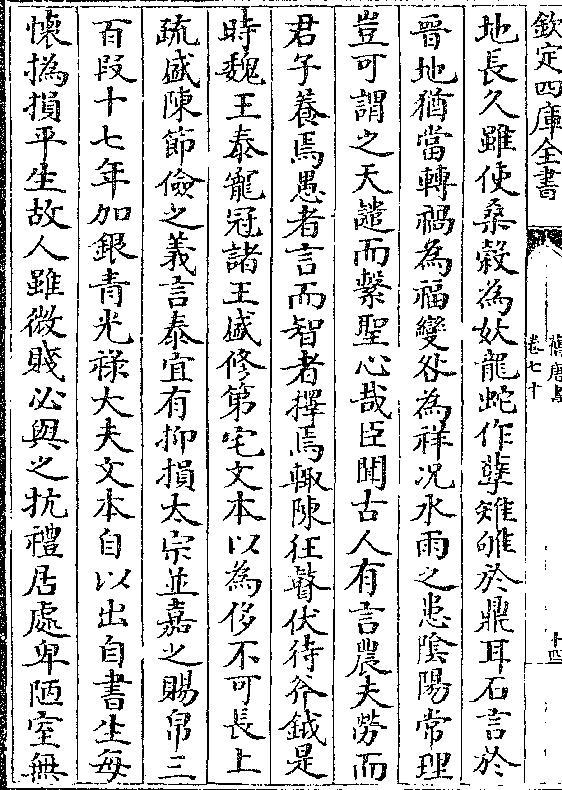 欽定四庫全書
舊唐書
卷七十
十四
地長久雖使桑榖為妖龍蛇作孽雉雊於鼎耳石言於
晉地猶當轉禍為福變咎為祥况水雨之患隂陽常理
豈可謂之天譴而繫聖心哉臣聞古人有言農夫勞而
君子養焉愚者言而智者擇焉輙陳狂瞽伏待斧鉞是
時魏王泰寵冠諸王盛修第宅文本以為侈不可長上
疏盛陳節儉之義言泰宜有抑損太宗並嘉之賜帛三
百段十七年加銀青光祿大夫文本自以出自書生每
懷撝損平生故人雖微賤必與之抗禮居處卑陋室無